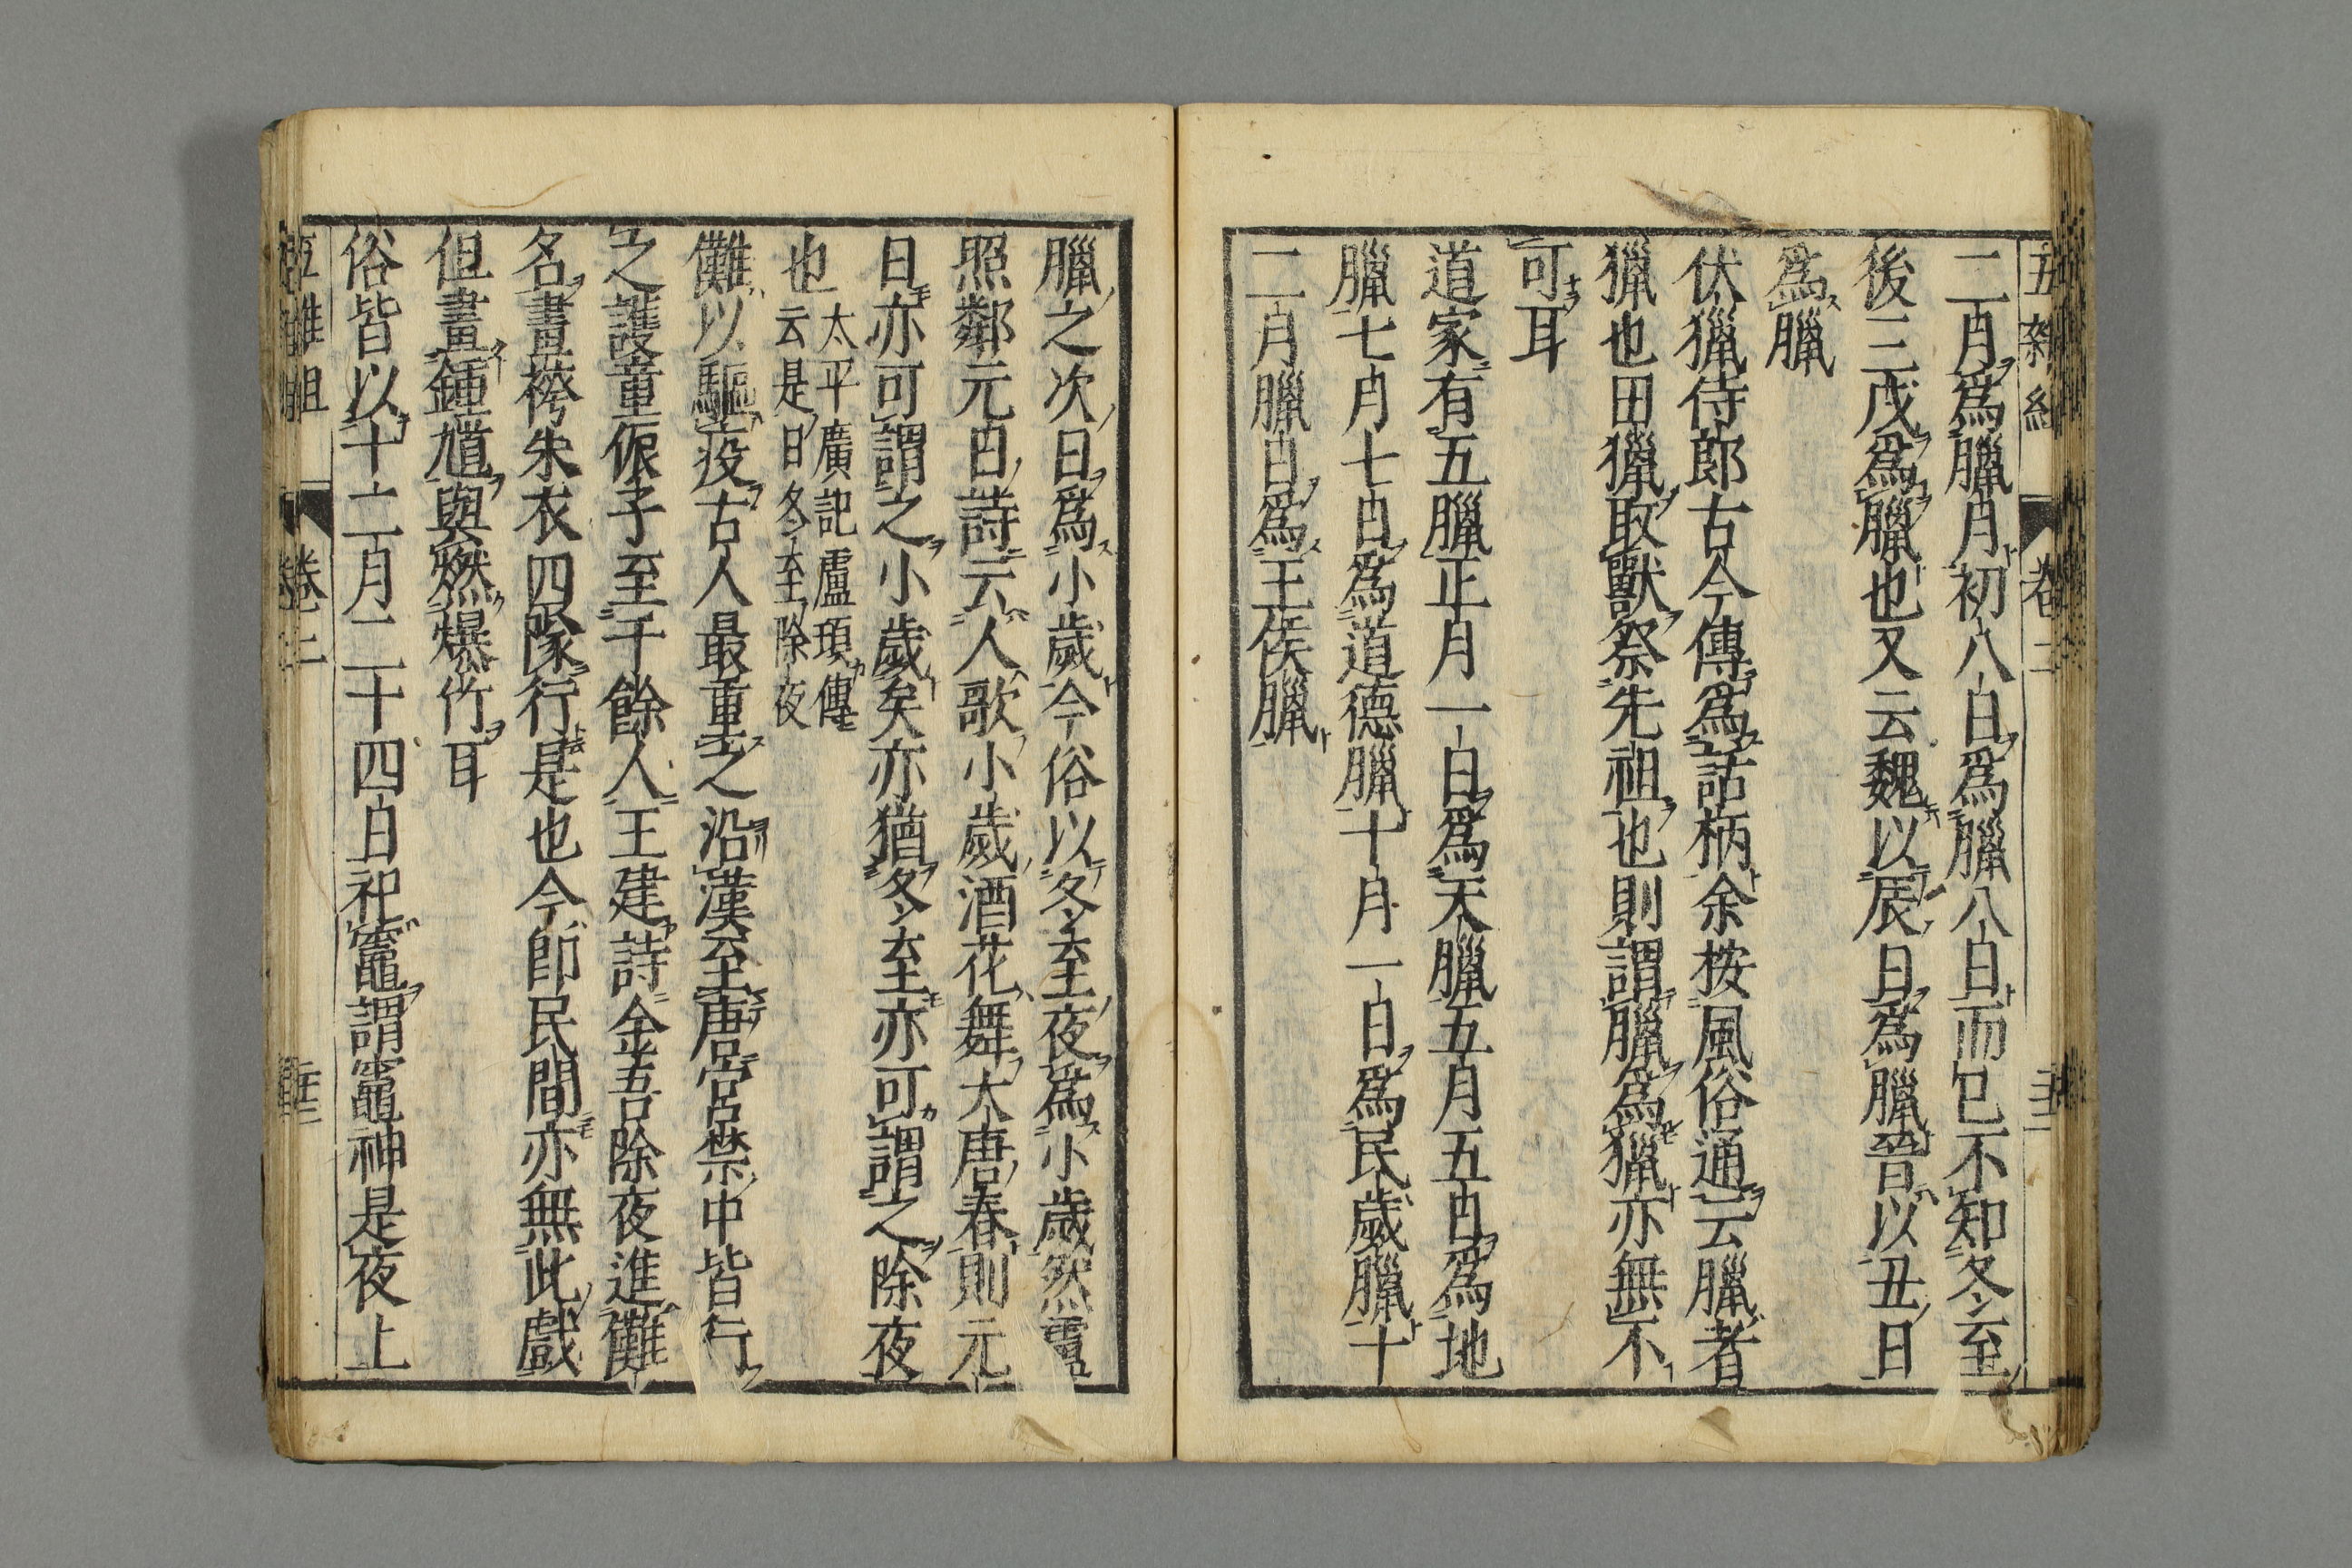 二月爲臘月初八日爲臘八日而已不知冬至
後三戊爲臘也又云魏以辰日爲臘晉以丑日
爲臘
伏獵侍郎古今傳爲話柄余按風俗通云臘者
獵也田獵取獸祭先祖也則謂臘爲獵亦無不
可耳
道家有五臘正月一日爲天臘五月五日爲地
臘七月七日爲道德臘十月一日爲民歲臘十
二月臘日爲王侯臘
臘之次日爲小歲今俗以冬至夜爲小歲然盧
照鄰元日詩云人歌小歲酒花舞大唐春則元
日亦可謂之小歲矣亦猶冬至亦可謂之除夜
也太平廣記盧頊傳
云是日冬至除夜
儺以驅疫古人最重之沿漢至唐宮禁中皆行
之護童侲子至千餘人王建詩金吾除夜進儺
名畫袴朱衣四隊行是也今卽民間亦無此戲
但畫鍾馗與燃爆竹耳
俗皆以十二月二十四日祀竈謂竈神是夜上
卷二